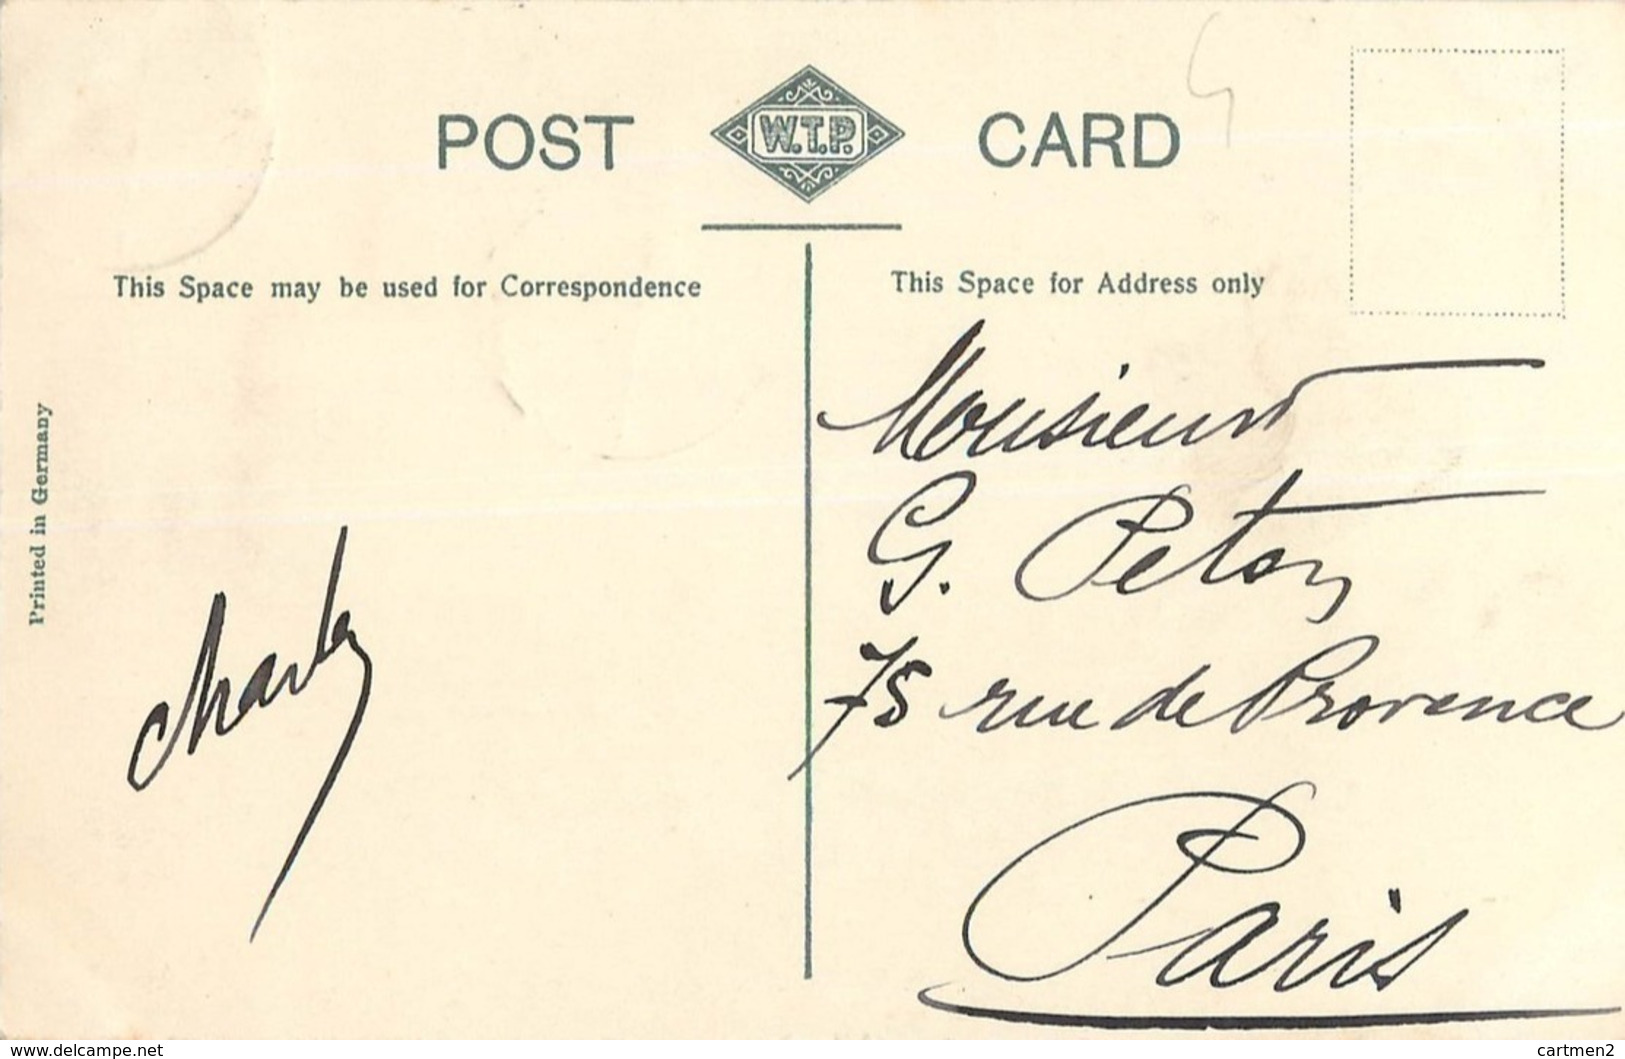 POST W.T.P. CARD
This Space may be used for Correspondence
This Space for Address only
Printed in Germany
Charles
Monsieur
G. Peton
75 rue de Provence
Paris
www.delcampe.net
cartmen2